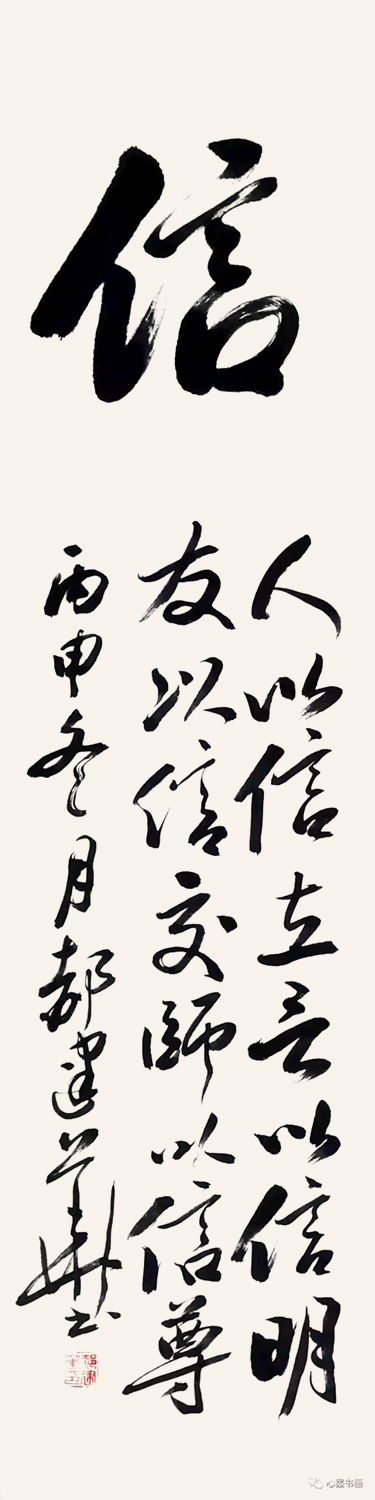 信
人以信立言以信明
友以信交師以信尊
丙申冬月都建華书
心墨书画